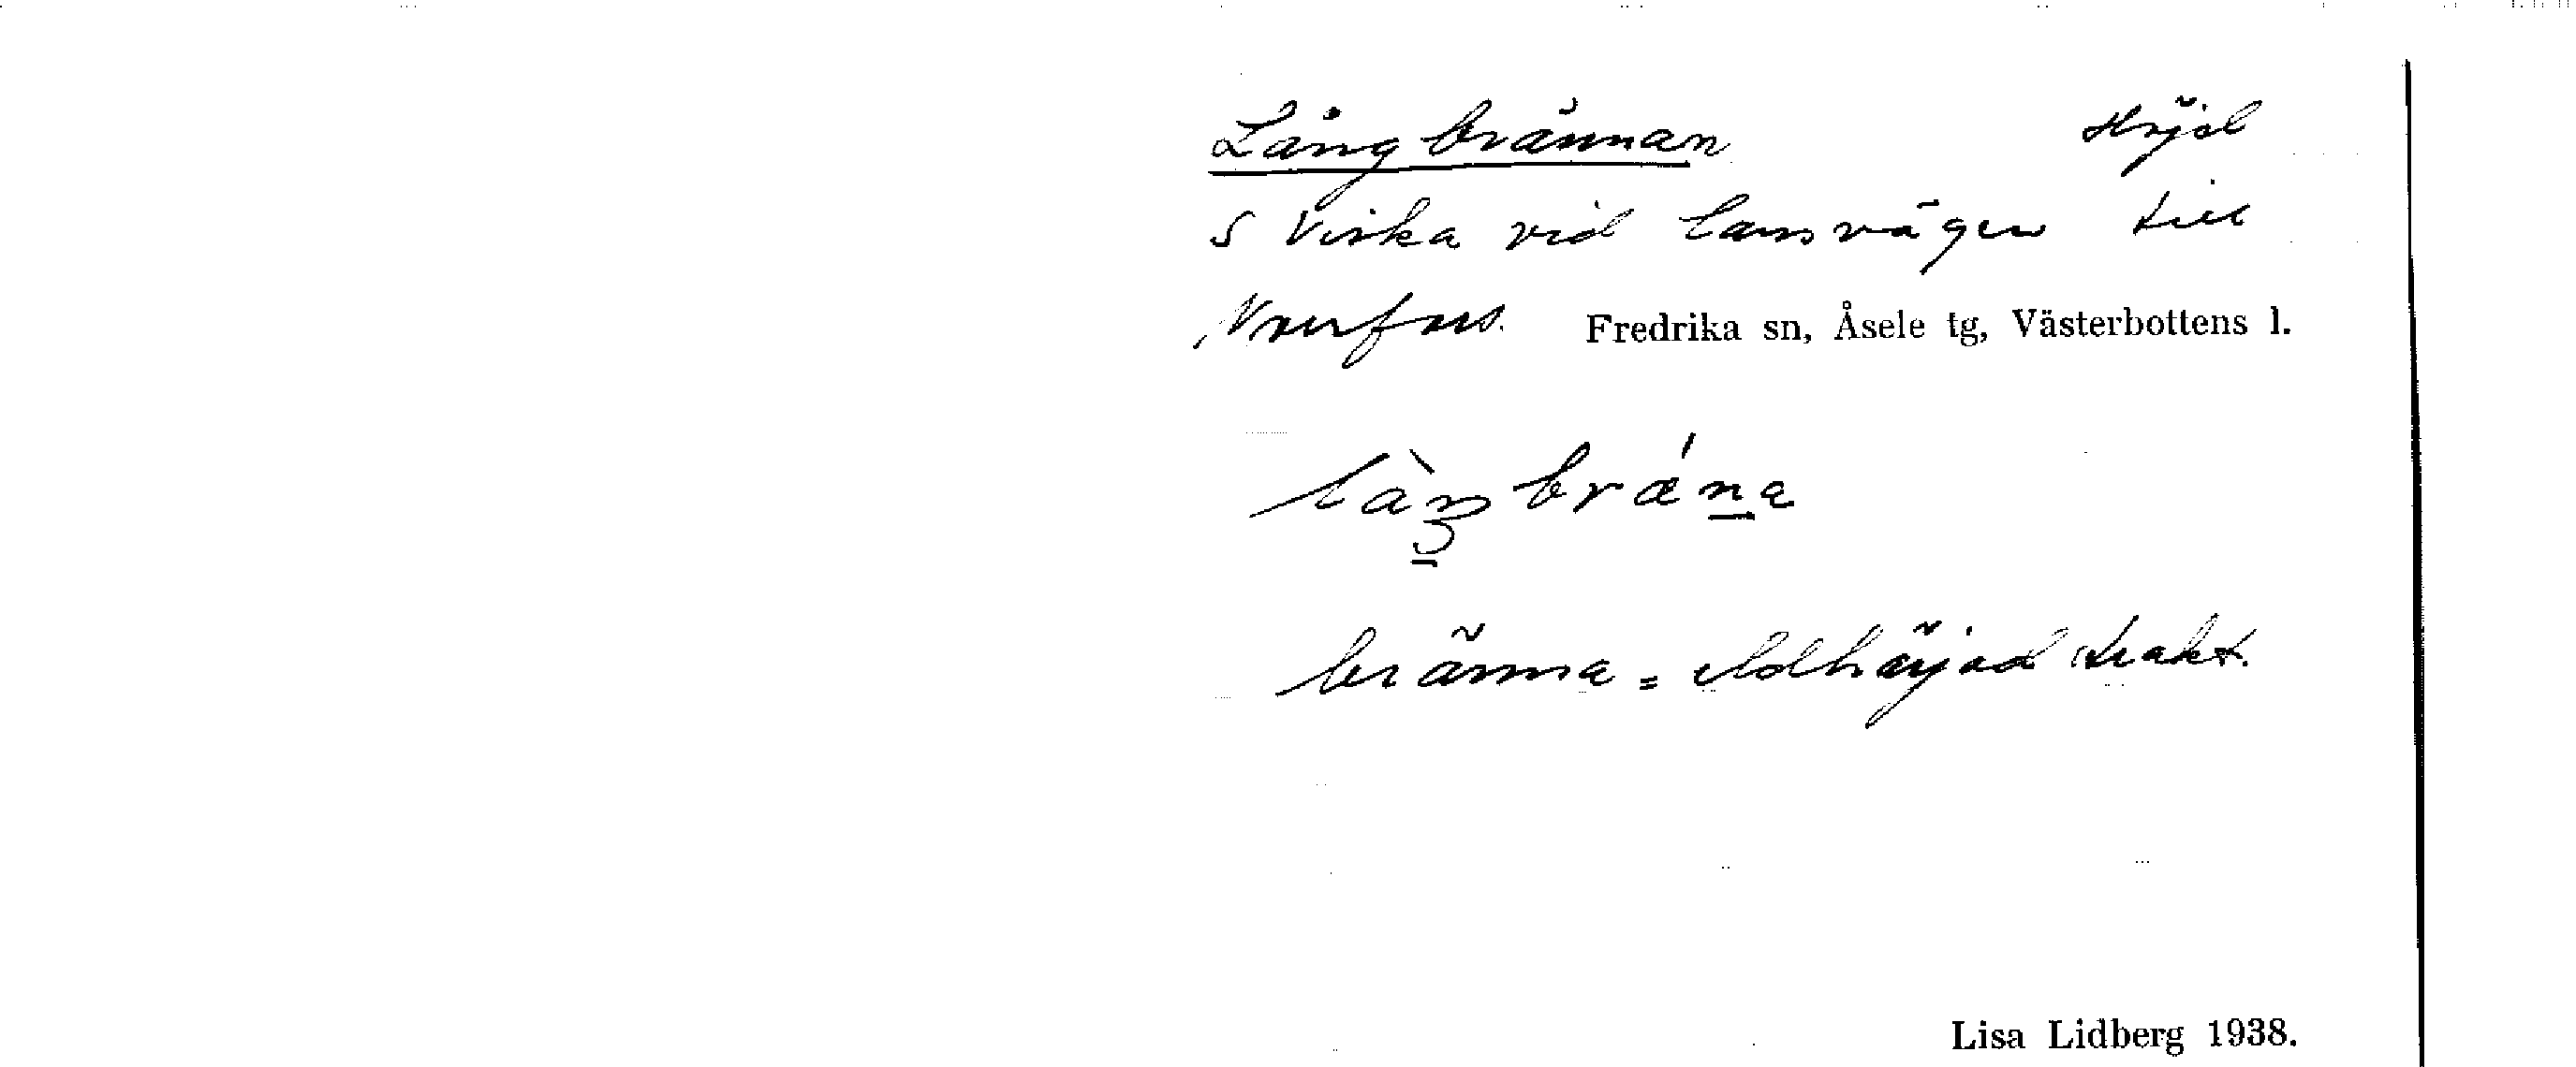 Långbrännan Höjd
S Viska vid lansvägen till
Norrfors. Fredrika sn, Åsele tg, Västerbottens l.
làŋbrǽna
bränna = eldhärjad trakt.
Lisa Lidberg 1938.